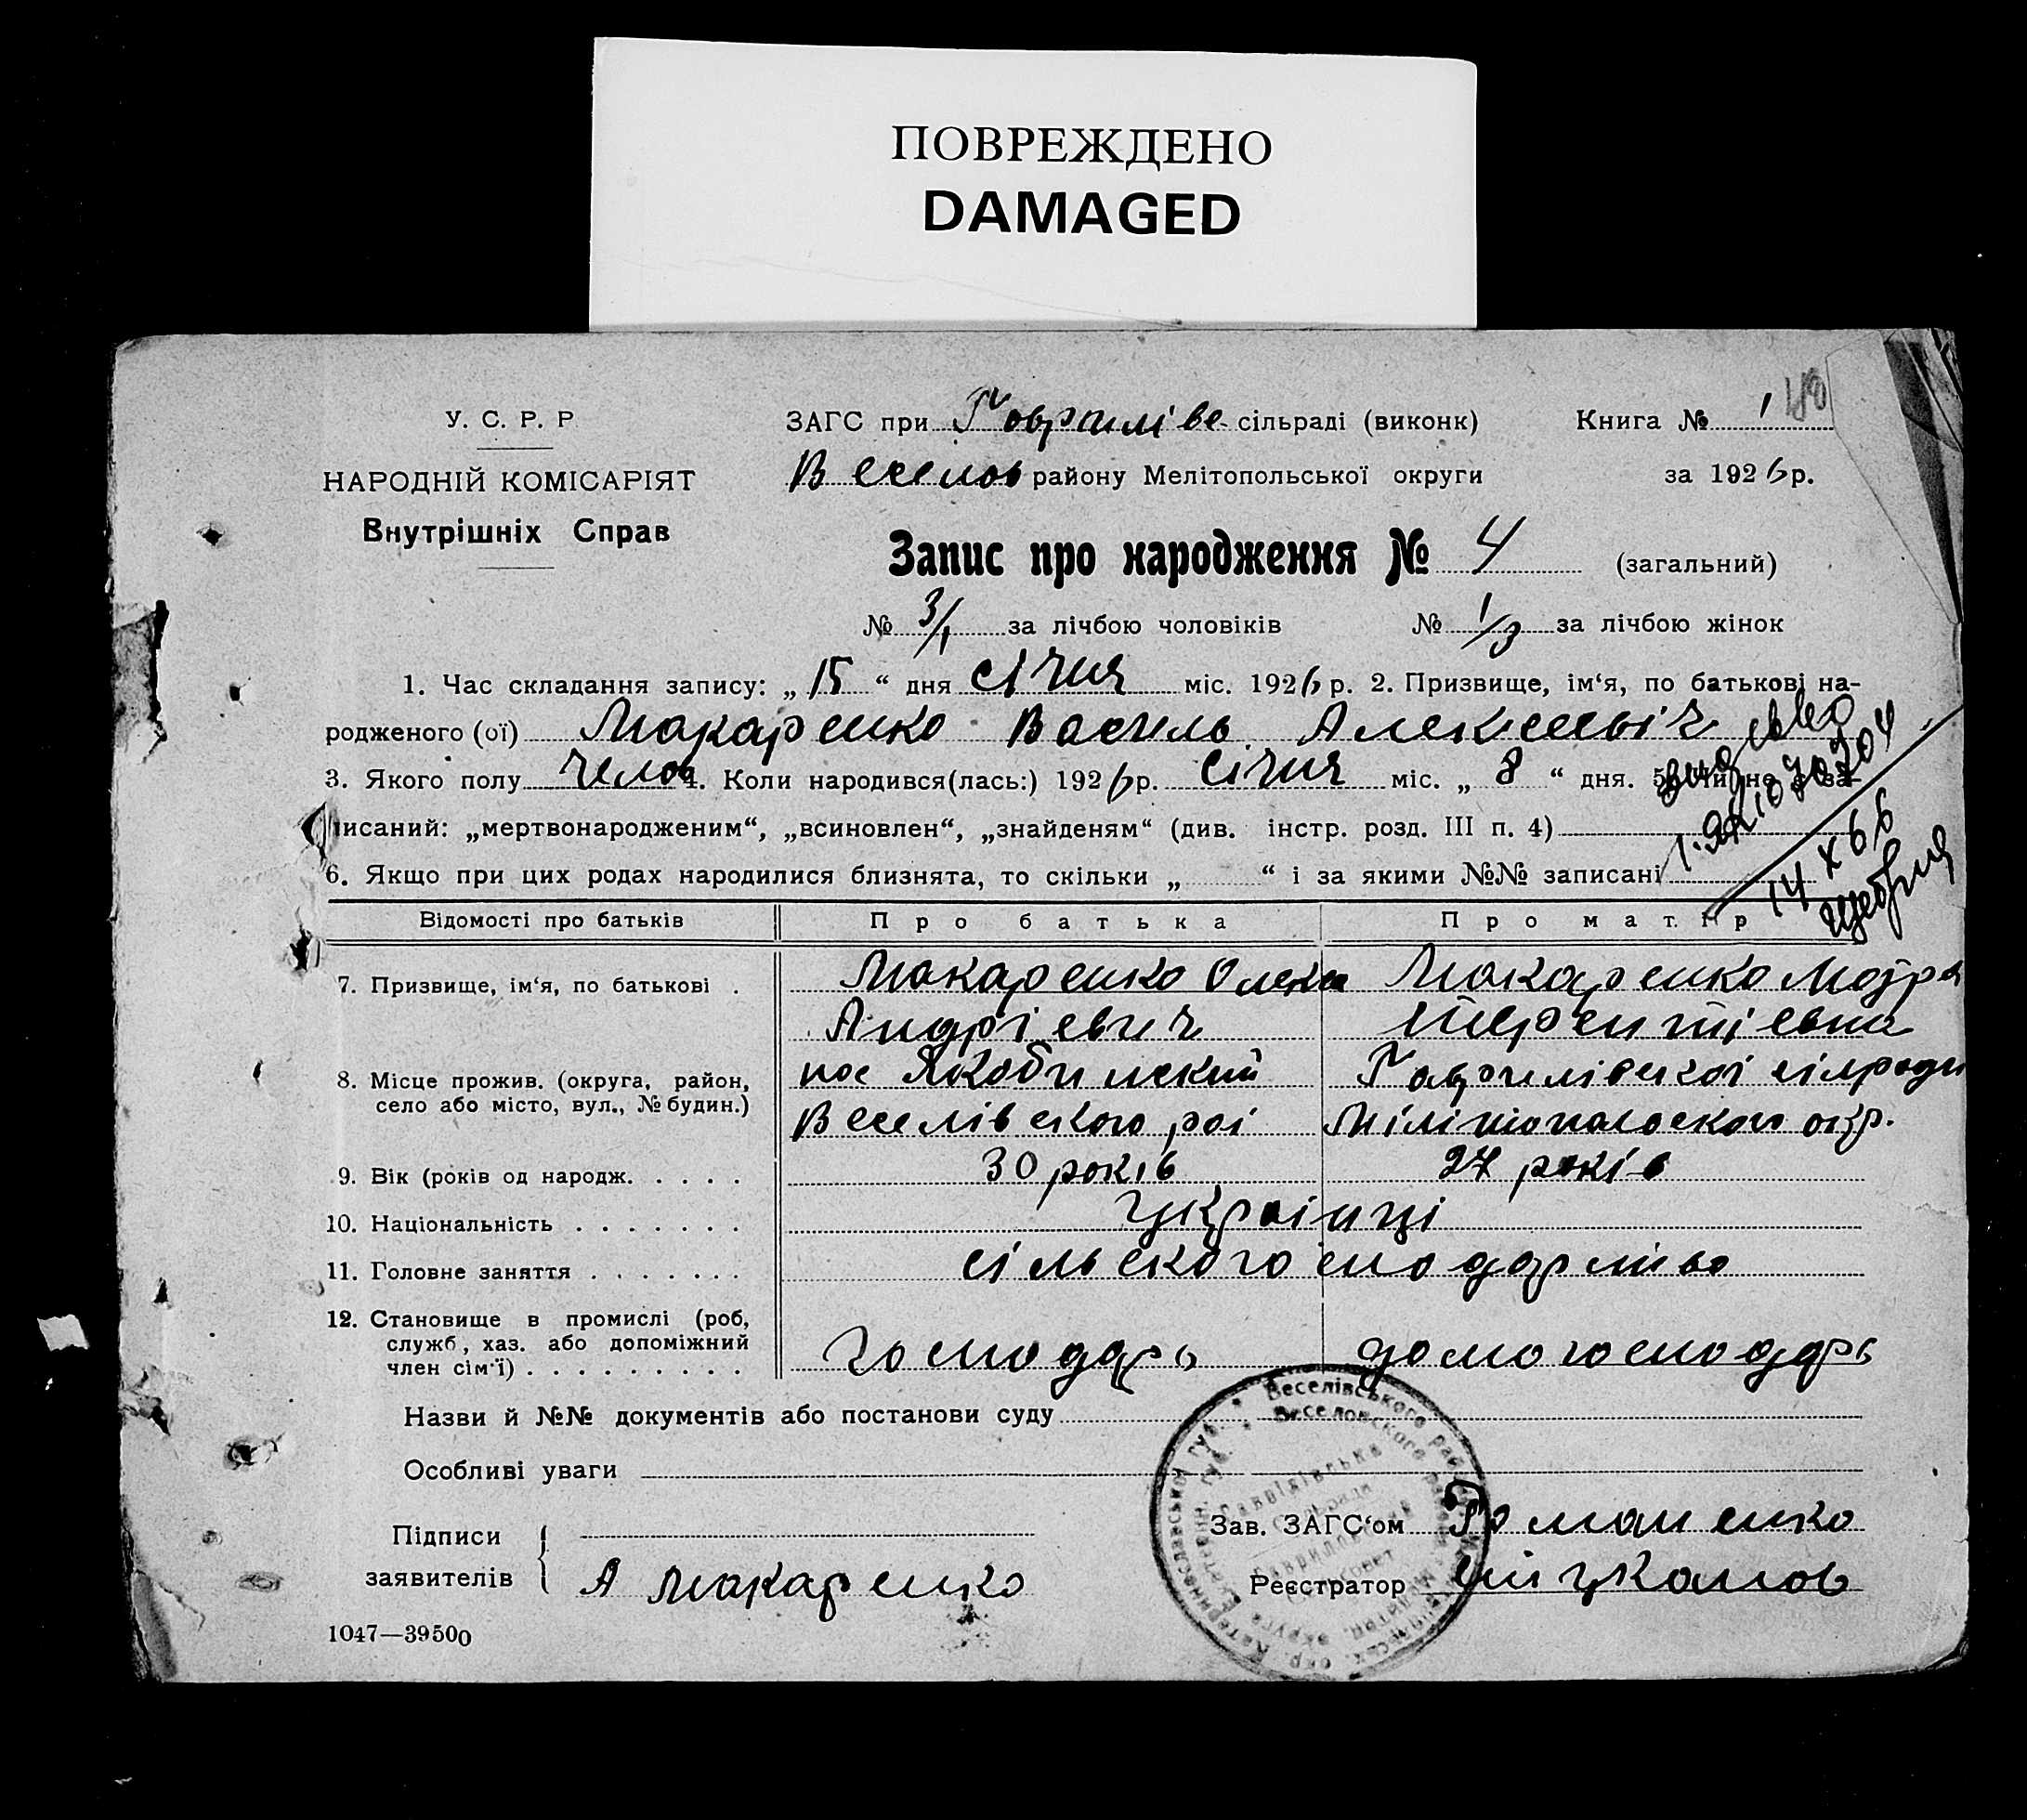 ПОВРЕЖДЕНО
DAMAGED
У. С. Р. Р
НАРОДНІЙ КОМІСАРІЯТ
Внутрішніх Справ
ЗАГС при Гаврилівс сільраді (виконк)
Книга № 1
Веселов району Мелітопольської округи
за 1926 р.
Запис про народження № 4 (загальний)
№ 3/1 за лічбою чоловіків № 1/3 за лічбою жінок
1. Час складання запису: „ 15 “ дня січня міс. 1926 р. 2. Призвище, ім‘я, по батькові на-
родженого (ої) Макаренко Василь Алексеевіч
3. Якого полу челов 4. Коли народився(лась:) 1926 р. січня міс. „ 8 “ дня. 5. Чи не є за-
писаний: „мертвонародженим“, „всиновлен“, „знайденям“ (див. інстр. розд. III п. 4)
6. Якщо при цих родах народилися близнята, то скільки „ “ і за якими №№ записані
14 X 66
Відомості про батьків Про батька Про матір
7. Призвище, ім‘я, по батькові . Макаренко Олекса Макаренко Мотря
Андріевич Терентіевна
8. Місце прожив. (округа, район, пос Якобинский Гаврилівскоі сілради
село або місто, вул., № будин.) Веселівского раі Мілітопольского окр.
9. Вік (років од народж. . . . . 30 років 27 років
10. Національність . . . . . . . Украінці
11. Головне заняття . . . . . . . сільского господарство
12. Становище в промислі (роб,
служб, хаз. або допоміжний
член сім‘ї) . . . . . . . . . господарь домогосподарь
Назви й №№ документів або постанови суду
Особливі уваги
Підписи
заявителів
А Макаренко
Зав. ЗАГС‘ом Романенко
Реєстратор
Веселівського
Веселовского
1047—39500